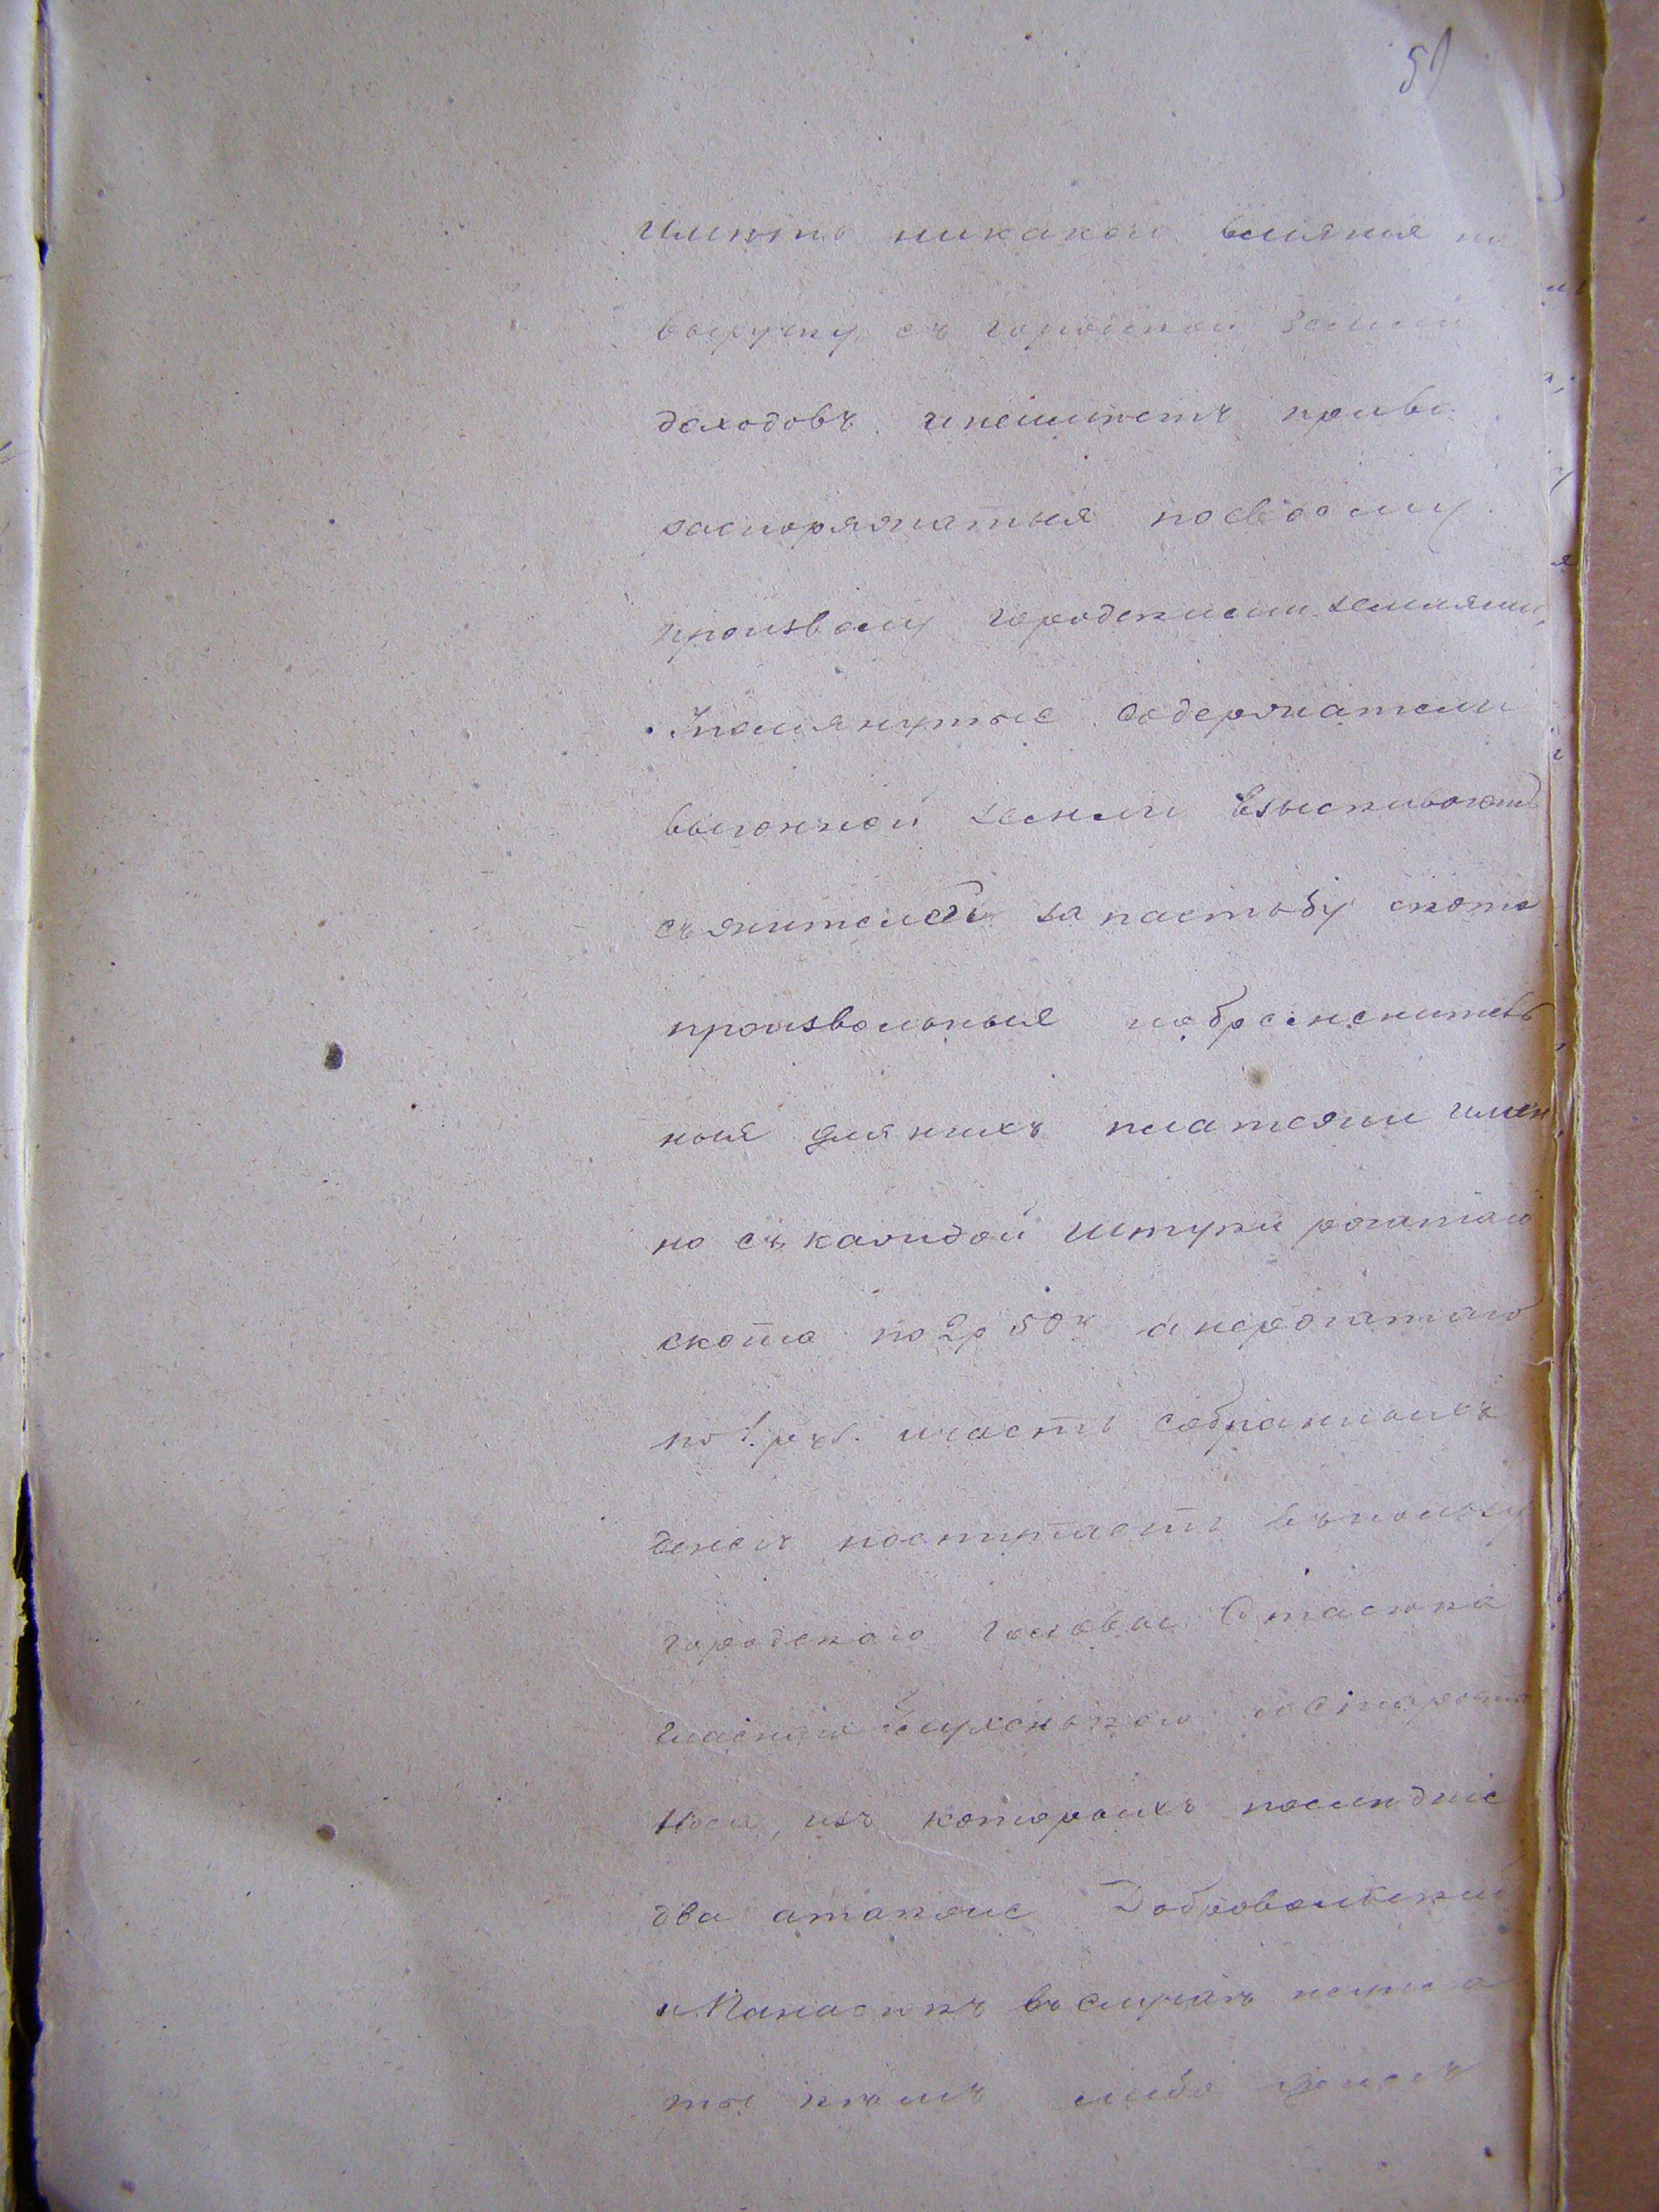 51
имѣть никакого вліянія на
выручку съ городской земли
доходовъ и неимѣетъ права
распоряжаться посвоему
произволу городскими землями,
Упомянутые содержатели
выгонной земли взыскиваютъ
съ жителей за пастьбу скота
произвольныя
ныя для нихъ платежи имен
но съ каждой штуки рогатаго
скота по 2 р 50 к а нерогатаго
по 1. руб. и часть собранныхъ
денегъ поступаетъ въ пользу
городскаго Головы Стасюка
гласнаго и старосты
изъ которыхъ послѣдніе
два а также Добровольскій
и Панасюкъ въ случаѣ неупла
ты кѣмъ либо денегъ